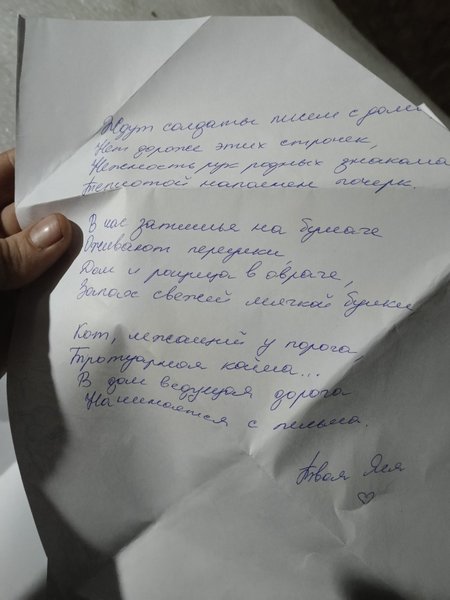 Ждут солдаты писем с дома
Нет дороже этих строчек,
Нежность рук родных знакома
Теплотой наполнен почерк.
В час затишья на бумаге
Оживают переулки,
Дом и роща в овраге,
Запах свежей мягкой булки
Кот, лежащий у порога,
Тротуарная кайма...
В дом ведущая дорога
Начинается с письма.
Твоя Яся
♡